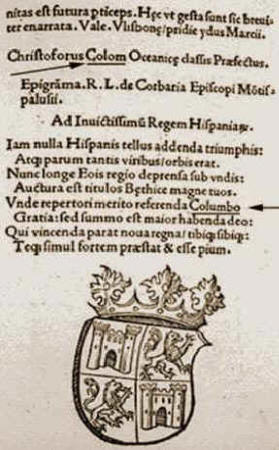 nitas est futura pticeps. Hęc vt gesta sunt sic breui
ter enarrata. Vale. Vlisbonę, pridie ydus Marcii.
Christoforus Colom Oceanicę classis Pręfectus.
Epigrāma. R. L. de Corbaria Episcopi Mōtis
palusii.
Ad Inuictissimū Regem Hispaniaȝ.
Iam nulla Hispanis tellus addenda triumphis:
Atqȝ parum tantis viribus/orbis erat.
Nunc longe Eois regio deprensa sub vndis:
Auctura est titulos Bęthice magne tuos.
Vnde repertori merito referenda Columbo
Gratia: sed summo est maior habenda deo:
Qui vincenda parat noua regna/tibiqȝ sibiqȝ:
Teqȝ simul fortem pręstat & esse pium.